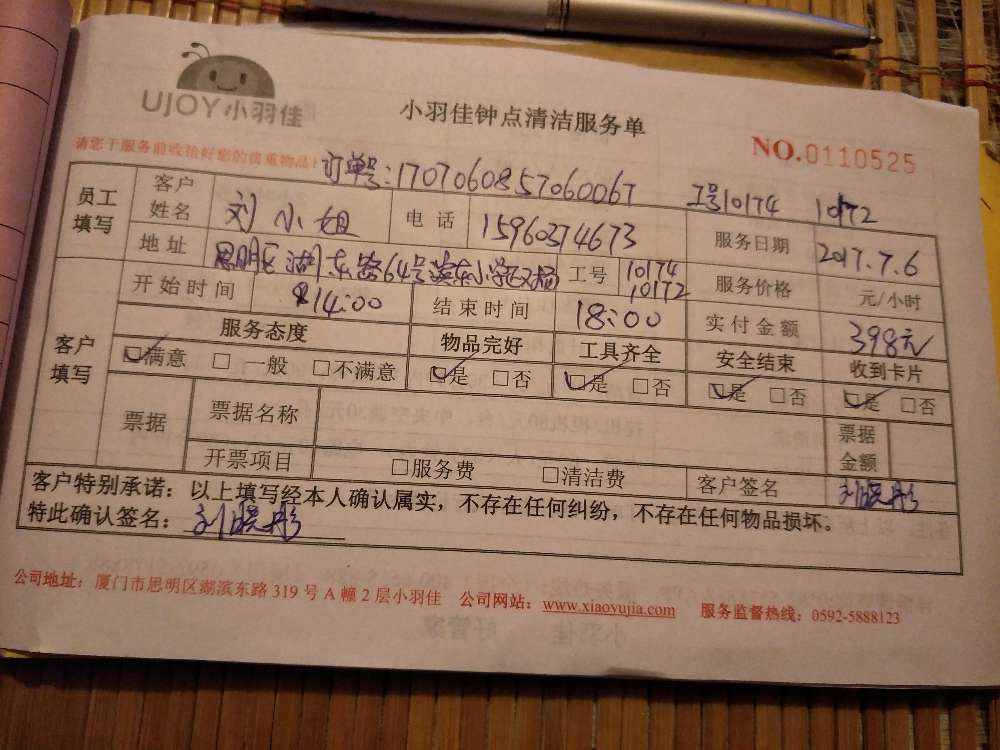 UJOY小羽佳
小羽佳钟点清洁服务单
请您于服务前收拾好您的贵重物品!
NO.0110525
订单号:1707060857060067 工号10174 10172
员工填写
客户姓名 刘小姐 电话 15960374673 服务日期 2017.7.6
地址 思明区湖东路64号滨东小学 工号 10174 10172 服务价格 元/小时
开始时间 14:00 结束时间 18:00 实付金额 398元
客户填写
服务态度 物品完好 工具齐全 安全结束 收到卡片
☑满意 □一般 □不满意 ☑是 □否 ☑是 □否 ☑是 □否 ☑是 □否
票据 票据名称 票据金额
开票项目 □服务费 □清洁费 客户签名 刘晓彤
客户特别承诺:以上填写经本人确认属实,不存在任何纠纷,不存在任何物品损坏。
特此确认签名:刘晓彤
公司地址:厦门市思明区湖滨东路 319 号 A 幢 2 层小羽佳 公司网站:www.xiaoyujia.com 服务监督热线:0592-5888123